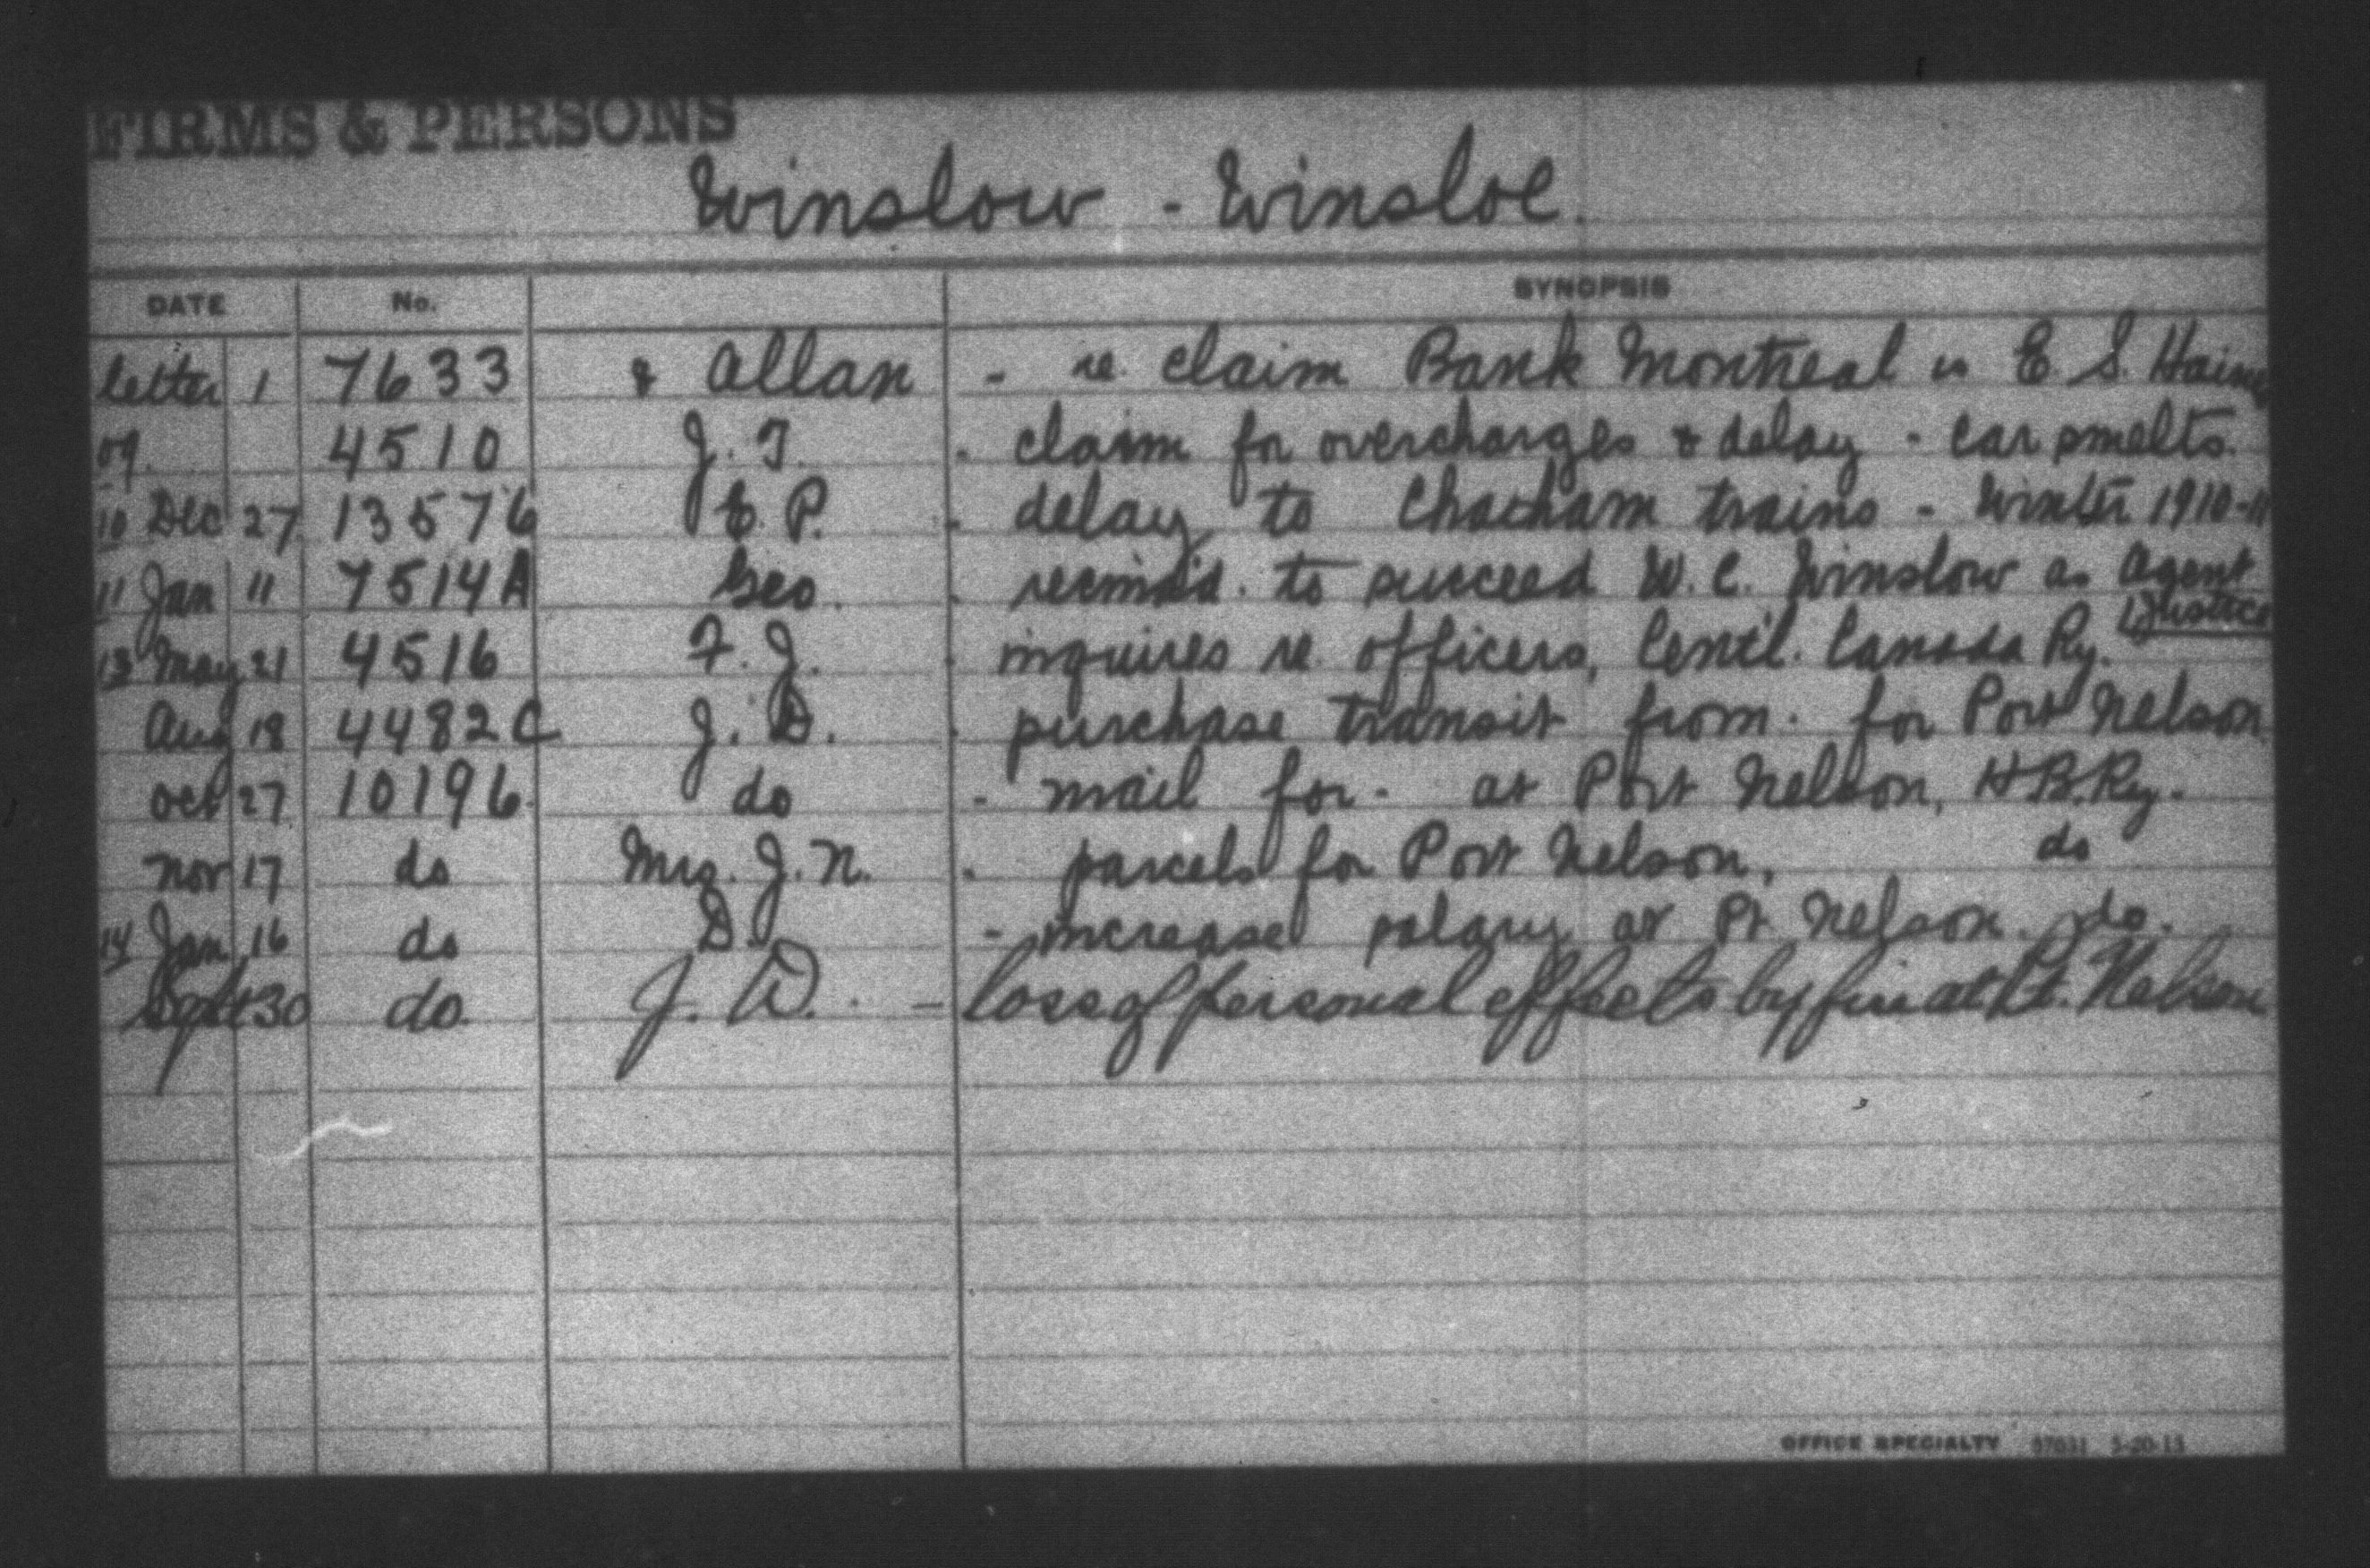 FIRMS & PERSONS
Winslow - Winsloe.
DATE No. SYNOPSIS
letter 1 7633 & Allan - re claim Bank Montreal vs E. S. Haines
09. 4510 J. T. - claim for overcharges & delay - car smelts.
10 Dec 27 13576 E. P. - delay to Chatham trains - Winter 1910-11
11 Jan 11 7514A Geo. - recm'd. to succeed W. C. Winslow as Agent
Justice
13 May 21 4516 F. J. - inquires re officers, Centl. Canada Ry.
Aug 18 4482C J. D. - purchase transit from - for Port Nelson
Oct 27 10196 do - mail for - at Port Nelson, H.B.Ry.
Nov 17 do Mrs. J. N. - parcels for Port Nelson, do
14 Jan 16 do D. - increase salary at Pt Nelson. do.
Sept 30 do. J. D. - loss of personal effects by fire at Pt. Nelson
OFFICE SPECIALTY 5-20-13